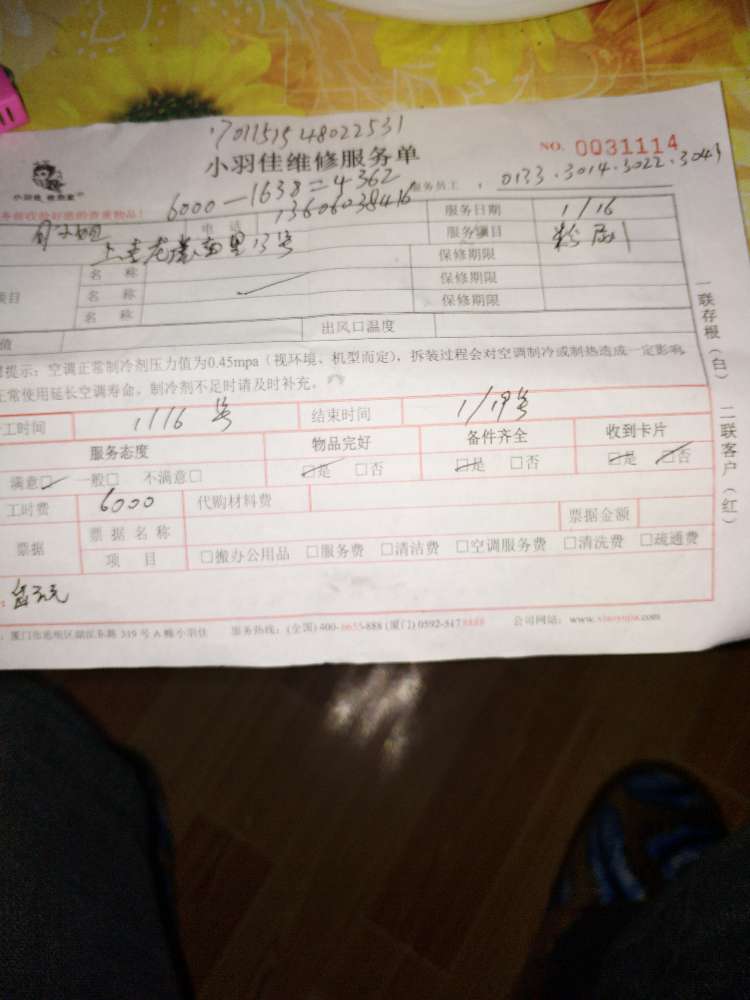 17011515 48022531
小羽佳维修服务单 NO. 0031114
小羽佳
6000-1638=4362 服务员工: 0133.3014.3022.3043
电话 13606038416 服务日期 1/16
服务项目 粉刷
13号
项目 名称 保修期限
名称 保修期限
名称 保修期限
值 出风口温度
提示:空调正常制冷剂压力值为0.45mpa(视环境、机型而定),拆装过程会对空调制冷或制热造成一定影响。
正常使用延长空调寿命。制冷剂不足时请及时补充。
工时间 1/16号 结束时间 1/19号
服务态度 物品完好 备件齐全 收到卡片
满意□ 一般□ 不满意□ □是 □否 □是 □否 □是 □否
工时费 6000 代购材料费
票据 票据名称 票据金额
项目 □搬办公用品 □服务费 □清洁费 □空调服务费 □清洗费 □疏通费
319号A幢小羽佳 服务热线:(全国)400-6655-888 (厦门)0592-5178888 公司网站:www.xiaoyujia.com
一联存根(白) 二联客户(红)